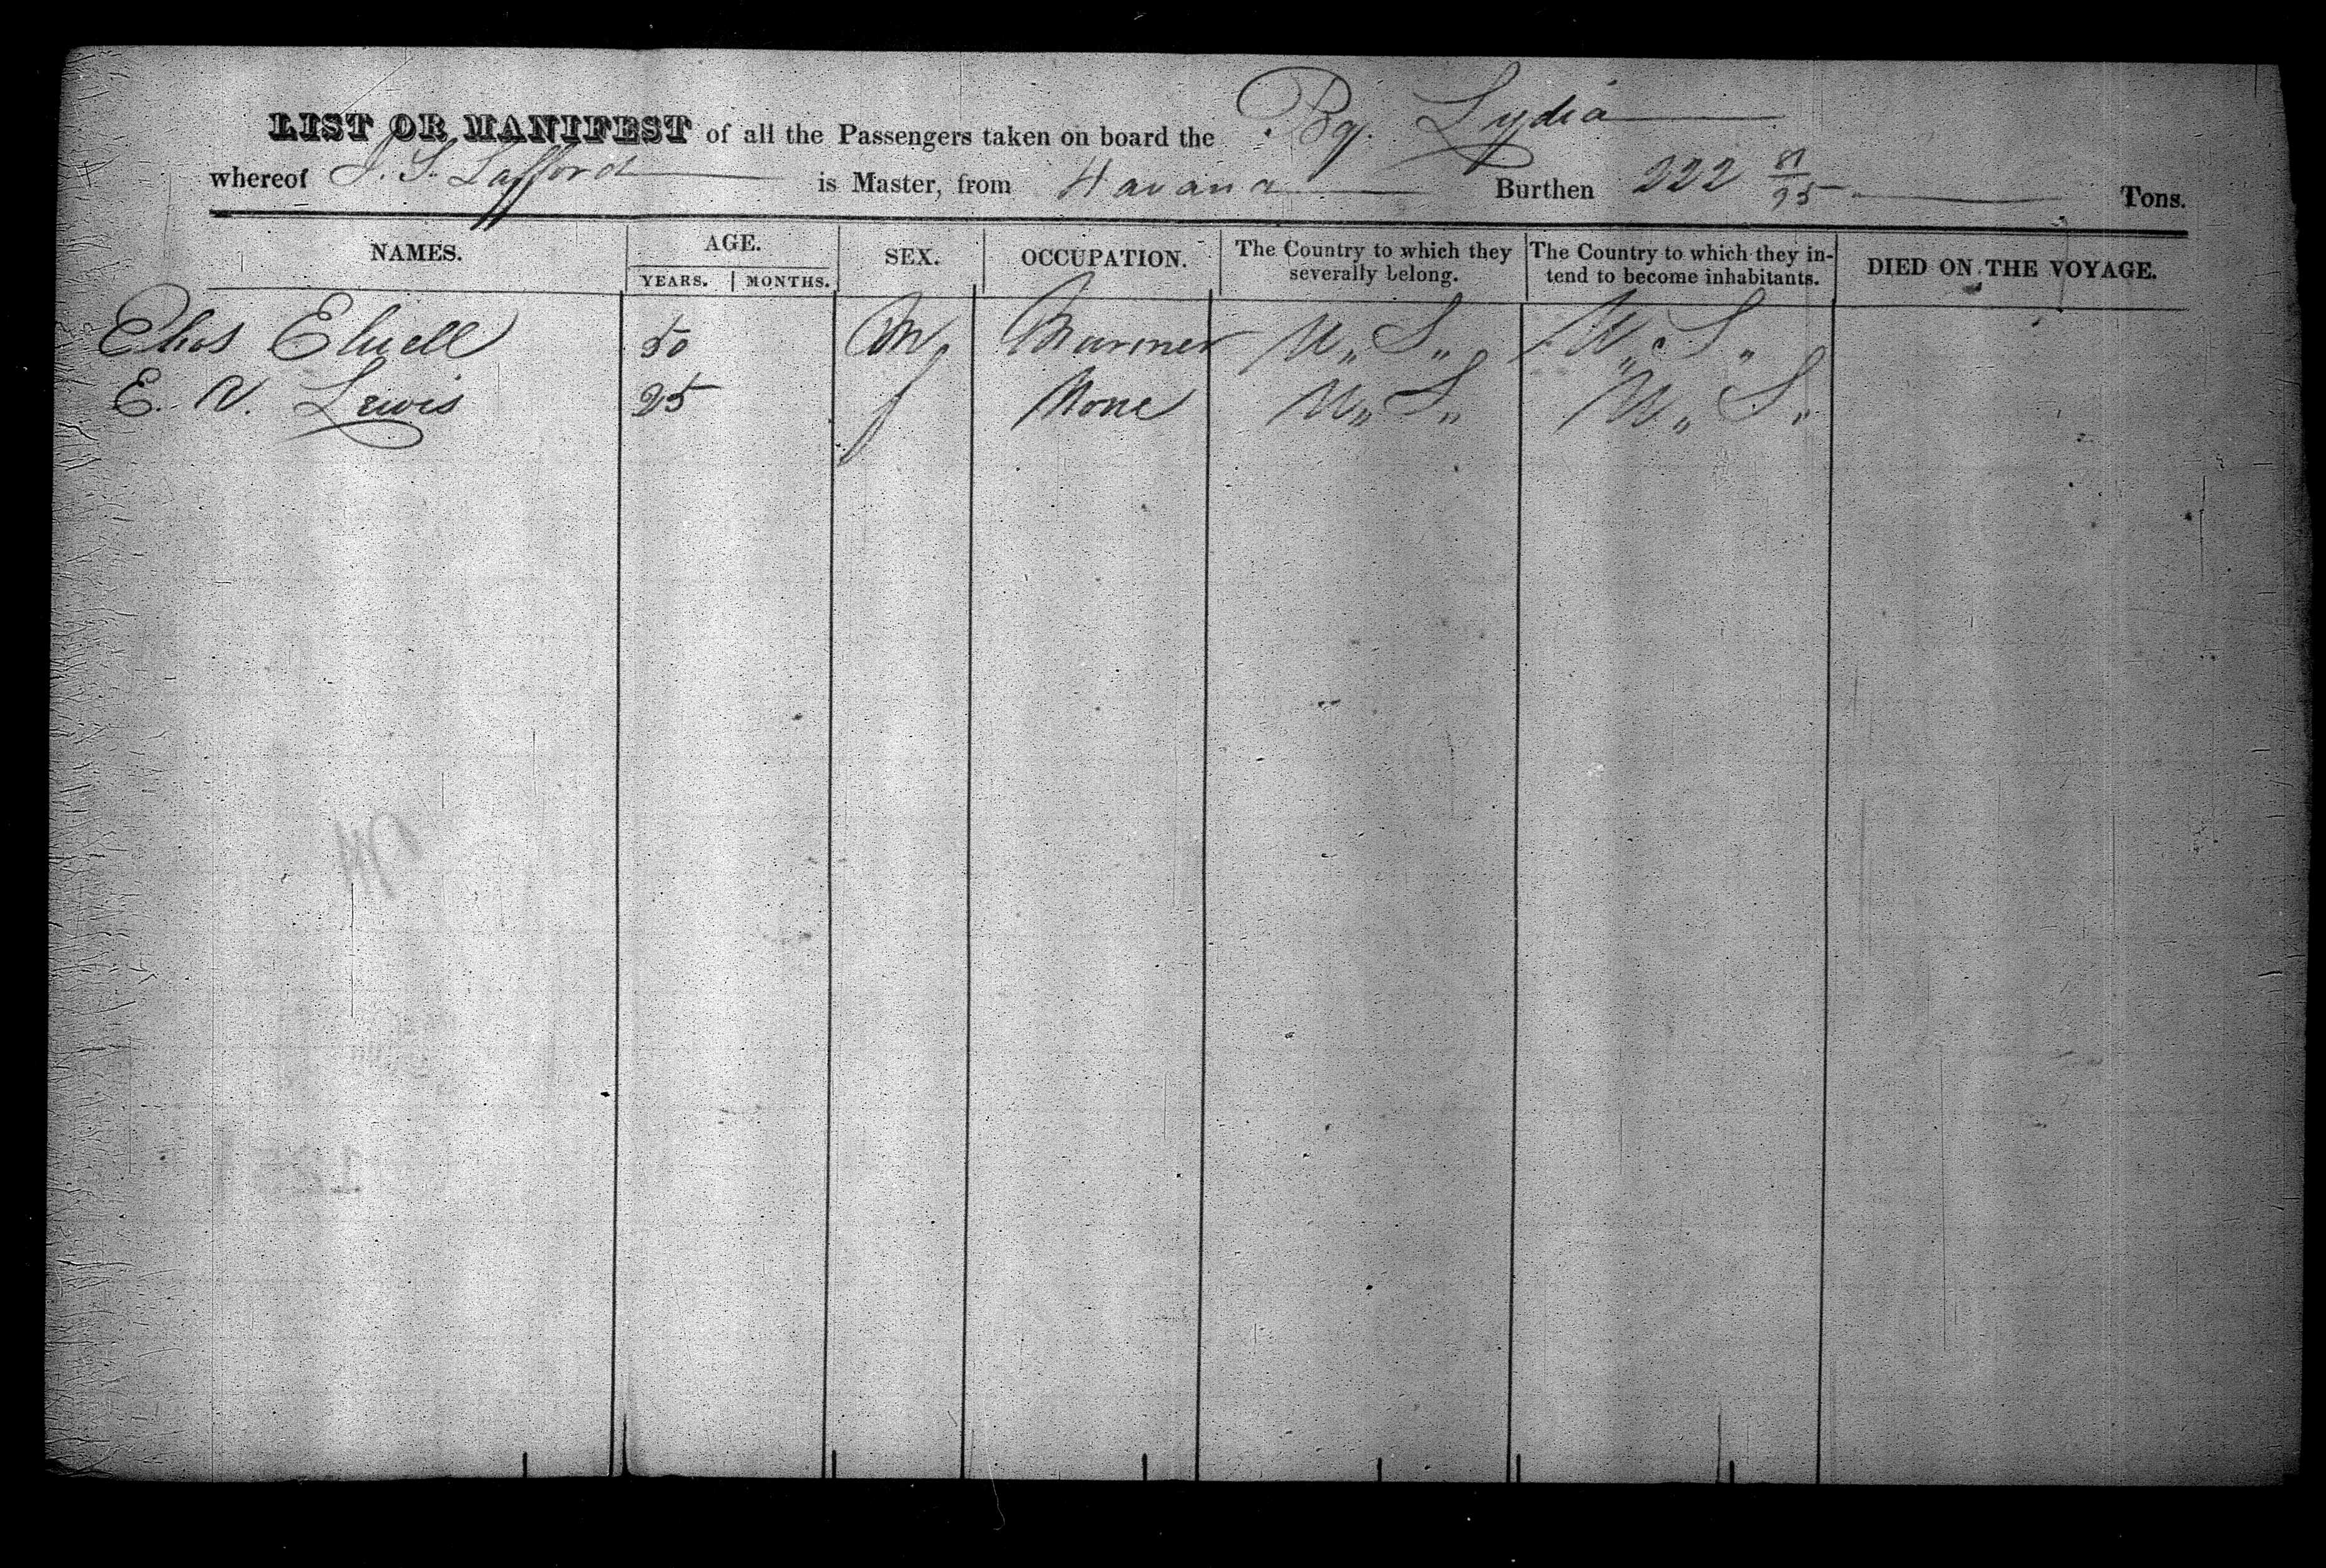 LIST OR MANIFEST of all the Passengers taken on board the Bg. Lydia
whereof J. S. Lafford is Master, from Havana Burthen 222 81/95 Tons.
NAMES. AGE. SEX. OCCUPATION. The Country to which they severally belong. The Country to which they intend to become inhabitants. DIED ON THE VOYAGE.
YEARS. MONTHS.
Elias Elwell 50 M Mariner U,, S,, U,, S,,
E. N. Lewis 25 f None U,, S,, U,, S,,